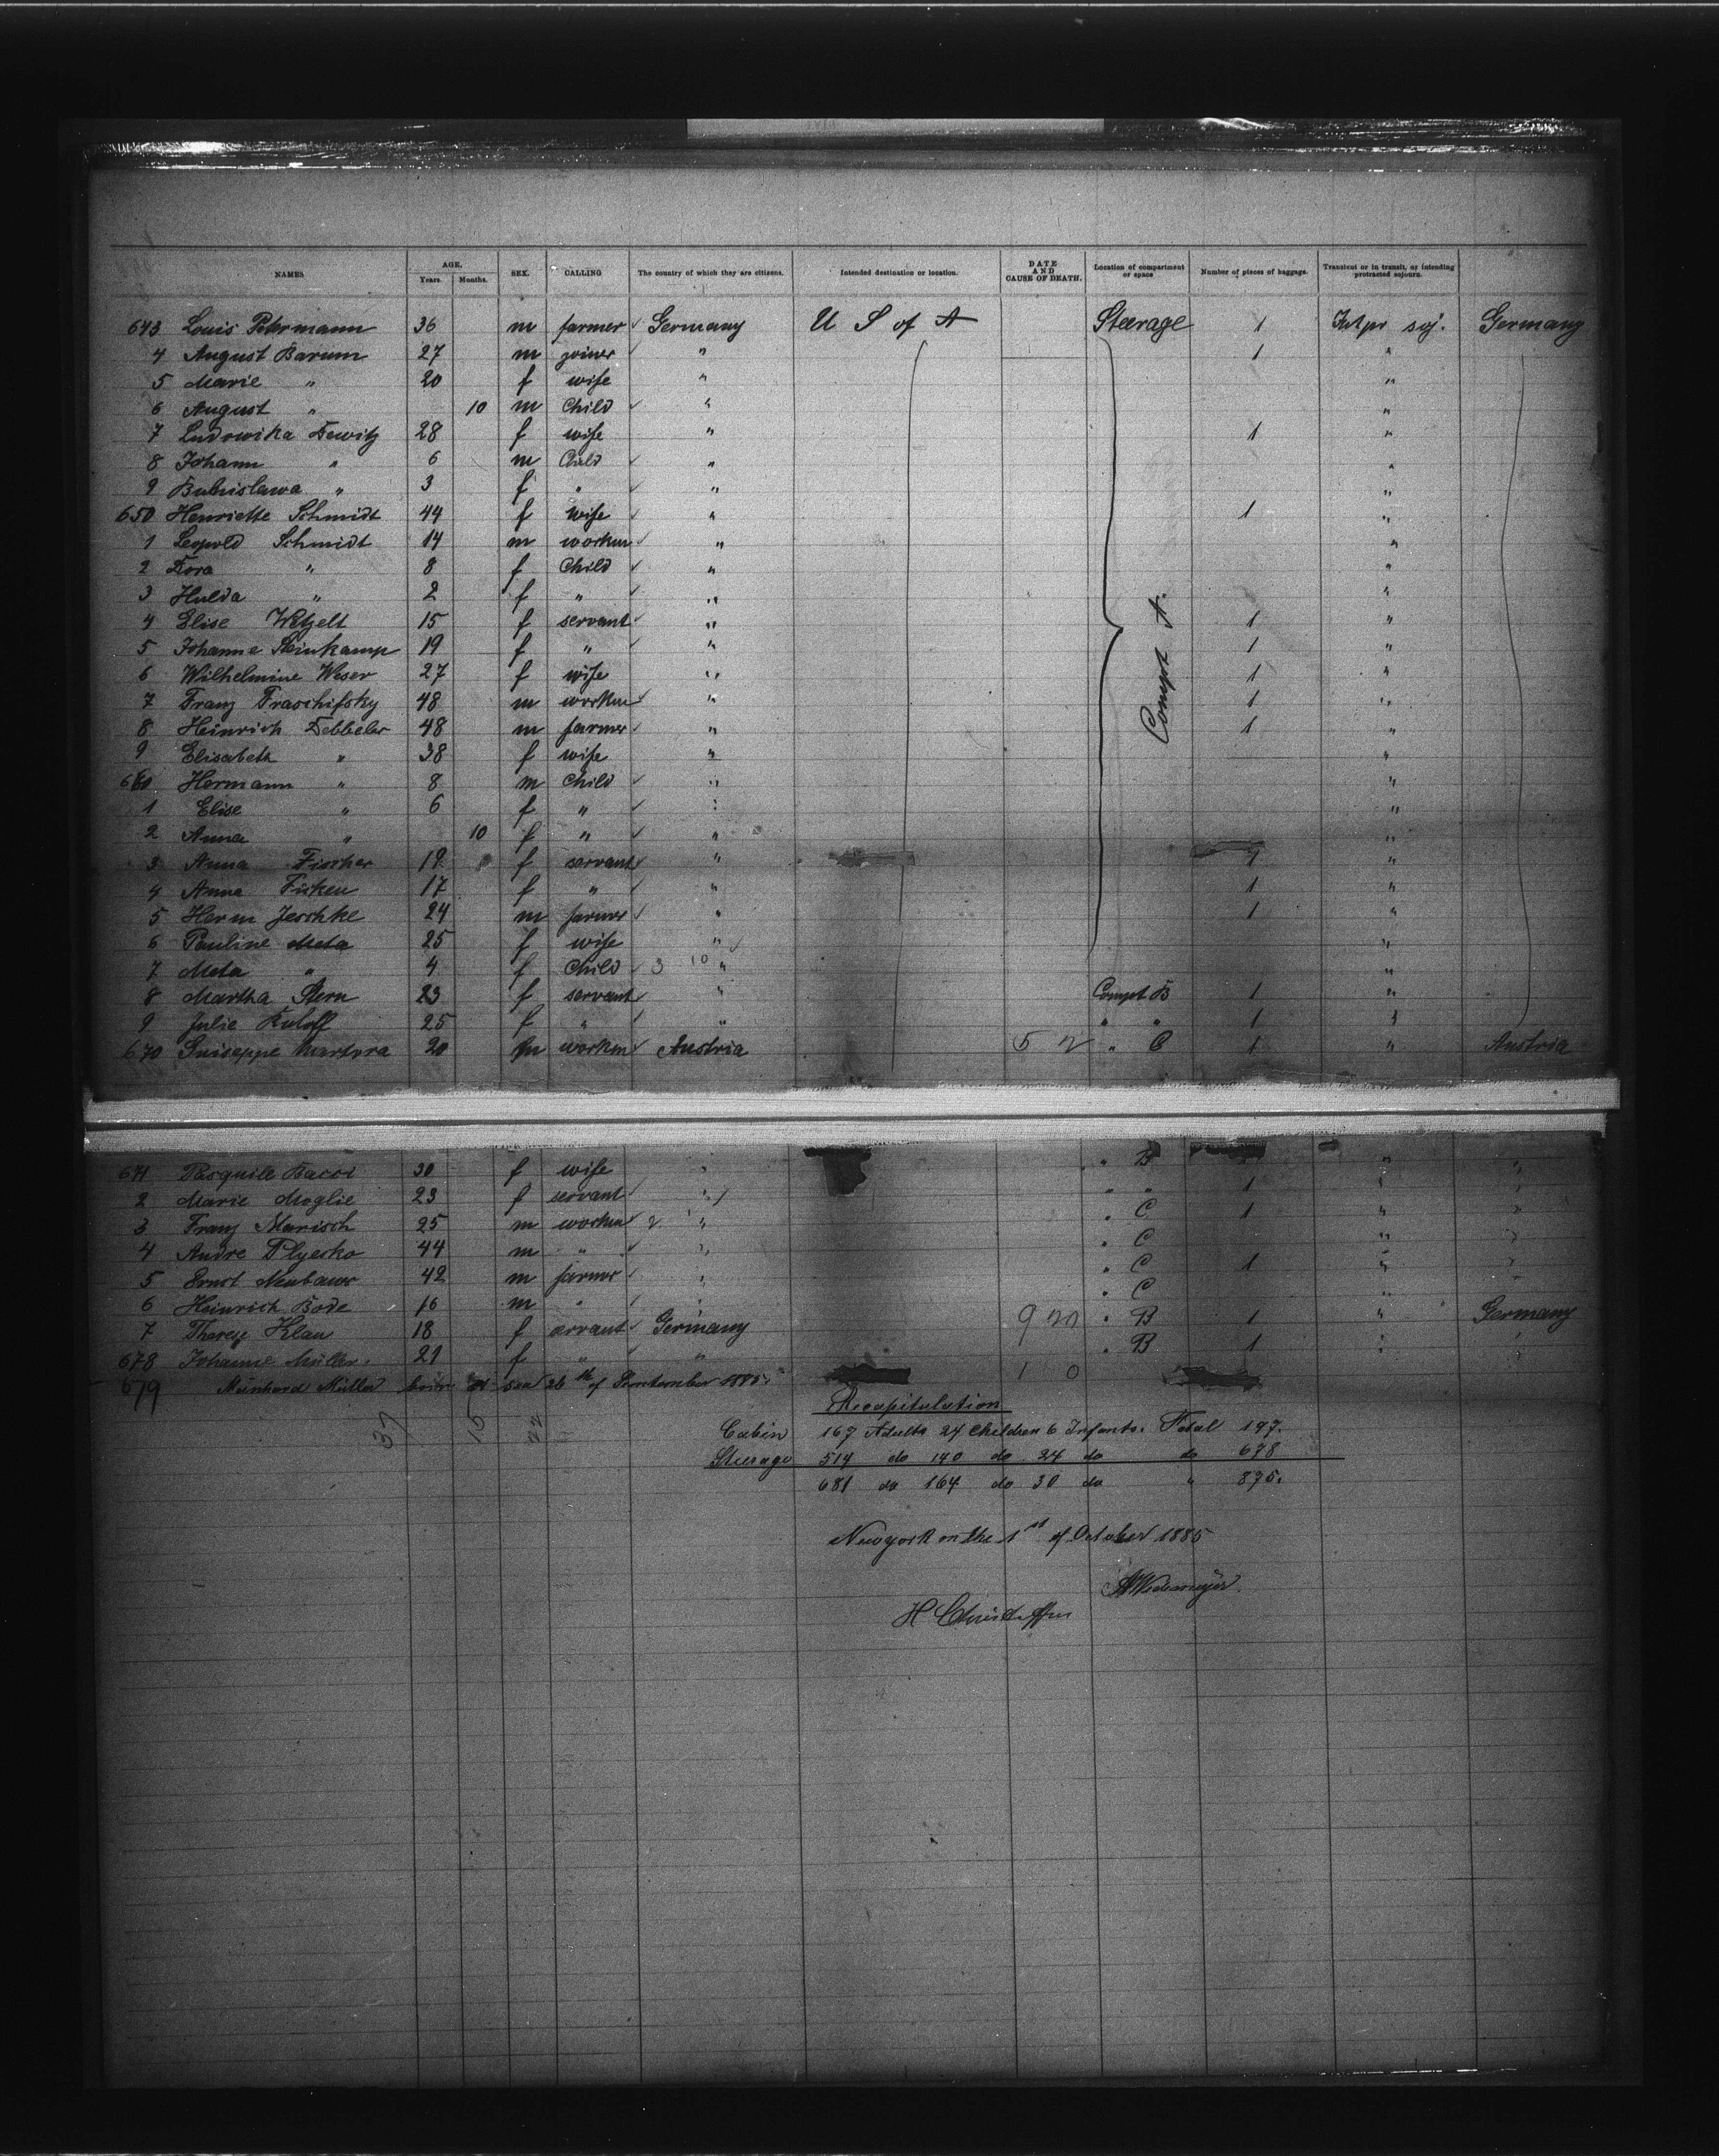 NAMES AGE. Years. Months. SEX. CALLING The country of which they are citizens. Intended destination or location. DATE AND CAUSE OF DEATH. Location of compartment or space Number of pieces of baggage. Transient or in transit, or intending protracted sojourn.
643 Louis Petermann 36 m farmer Germany U S of A Steerage 1 Int pr soj. Germany
4 August Barum 27 m joiner " 1 "
5 Marie " 20 f wife " "
6 August " 10 m Child " "
7 Ludowika Dewitz 28 f wife " 1 "
8 Johann " 6 m Child " "
9 " 3 f " " "
650 Henriette Schmidt 44 f wife " 1 "
1 Leopold Schmidt 14 m workm " "
2 Dora " 8 f Child " "
3 Hulda " 2 f " " "
4 Elise Wetzelt 15 f servant " 1 "
5 Johanne Steinkamp 19 f " " 1 "
6 Wilhelmine Weser 27 f wife " 1 "
7 Franz Fraschifsky 48 m workm " 1 "
8 Heinrich Debbeler 48 m farmer " 1 "
9 Elisabeth " 38 f wife " "
660 Hermann " 8 m Child " "
1 Elise " 6 f " " "
2 Anna " 10 f " " "
3 Anna Fischer 19 f servant " 1 "
4 Anna Ficken 17 f " " 1 "
5 Herm Jeschke 24 m farmer " 1 "
6 Pauline Meta 25 f wife " "
7 Meta " 4 f Child 3 10 " "
8 Martha Stern 23 f servant " Compt B 1 "
9 Julie Kuloff 25 f " " " " 1 "
670 Guiseppe Martora 20 m workm Austria 5 2 " C 1 " Austria
Compt A.
671 Pasquile Bacci 30 f wife " " B " "
2 Marie Moglie 23 f servant " " " 1 " "
3 Franz Marisch 25 m workm 2 " " C 1 " "
4 Andre Plyesko 44 m " " " C " "
5 Ernst Neubauer 42 m farmer " " C 1 " "
6 Heinrich Bode 16 m " " " C " "
7 Therese Klau 18 f servant Germany 9 20 " B 1 " Germany
678 Johanne Müller 21 f " " " B 1 " "
679 Meinhard Müller born at sea 26th of September 1885. 1 0
37 15 22
Recapitulation
Cabin 167 Adults 24 Children 6 Infants. Total 197.
Steerage 514 do 140 do 24 do do 678
681 do 164 do 30 do " 875.
Newyork on the 1st of October 1885
H Christoffers